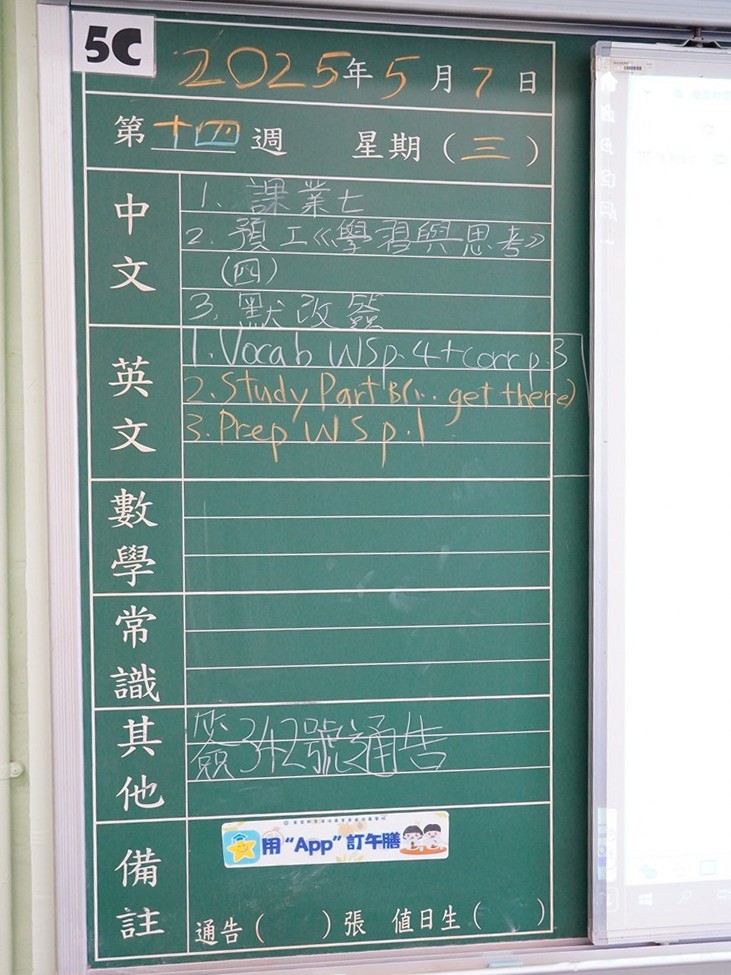 5C
2025年5月7日
第十四週 星期（三）
中文
1. 課業七
2. 預工《學習與思考》
(四)
3. 默改簽
英文
1. Vocab WS p.4 + corr p.3
2. Study Part B (1.. get there)
3. Prep WS p.1
數學
常識
其他
簽342號通告
備註
用“App”訂午膳
通告（ ）張 值日生（ ）